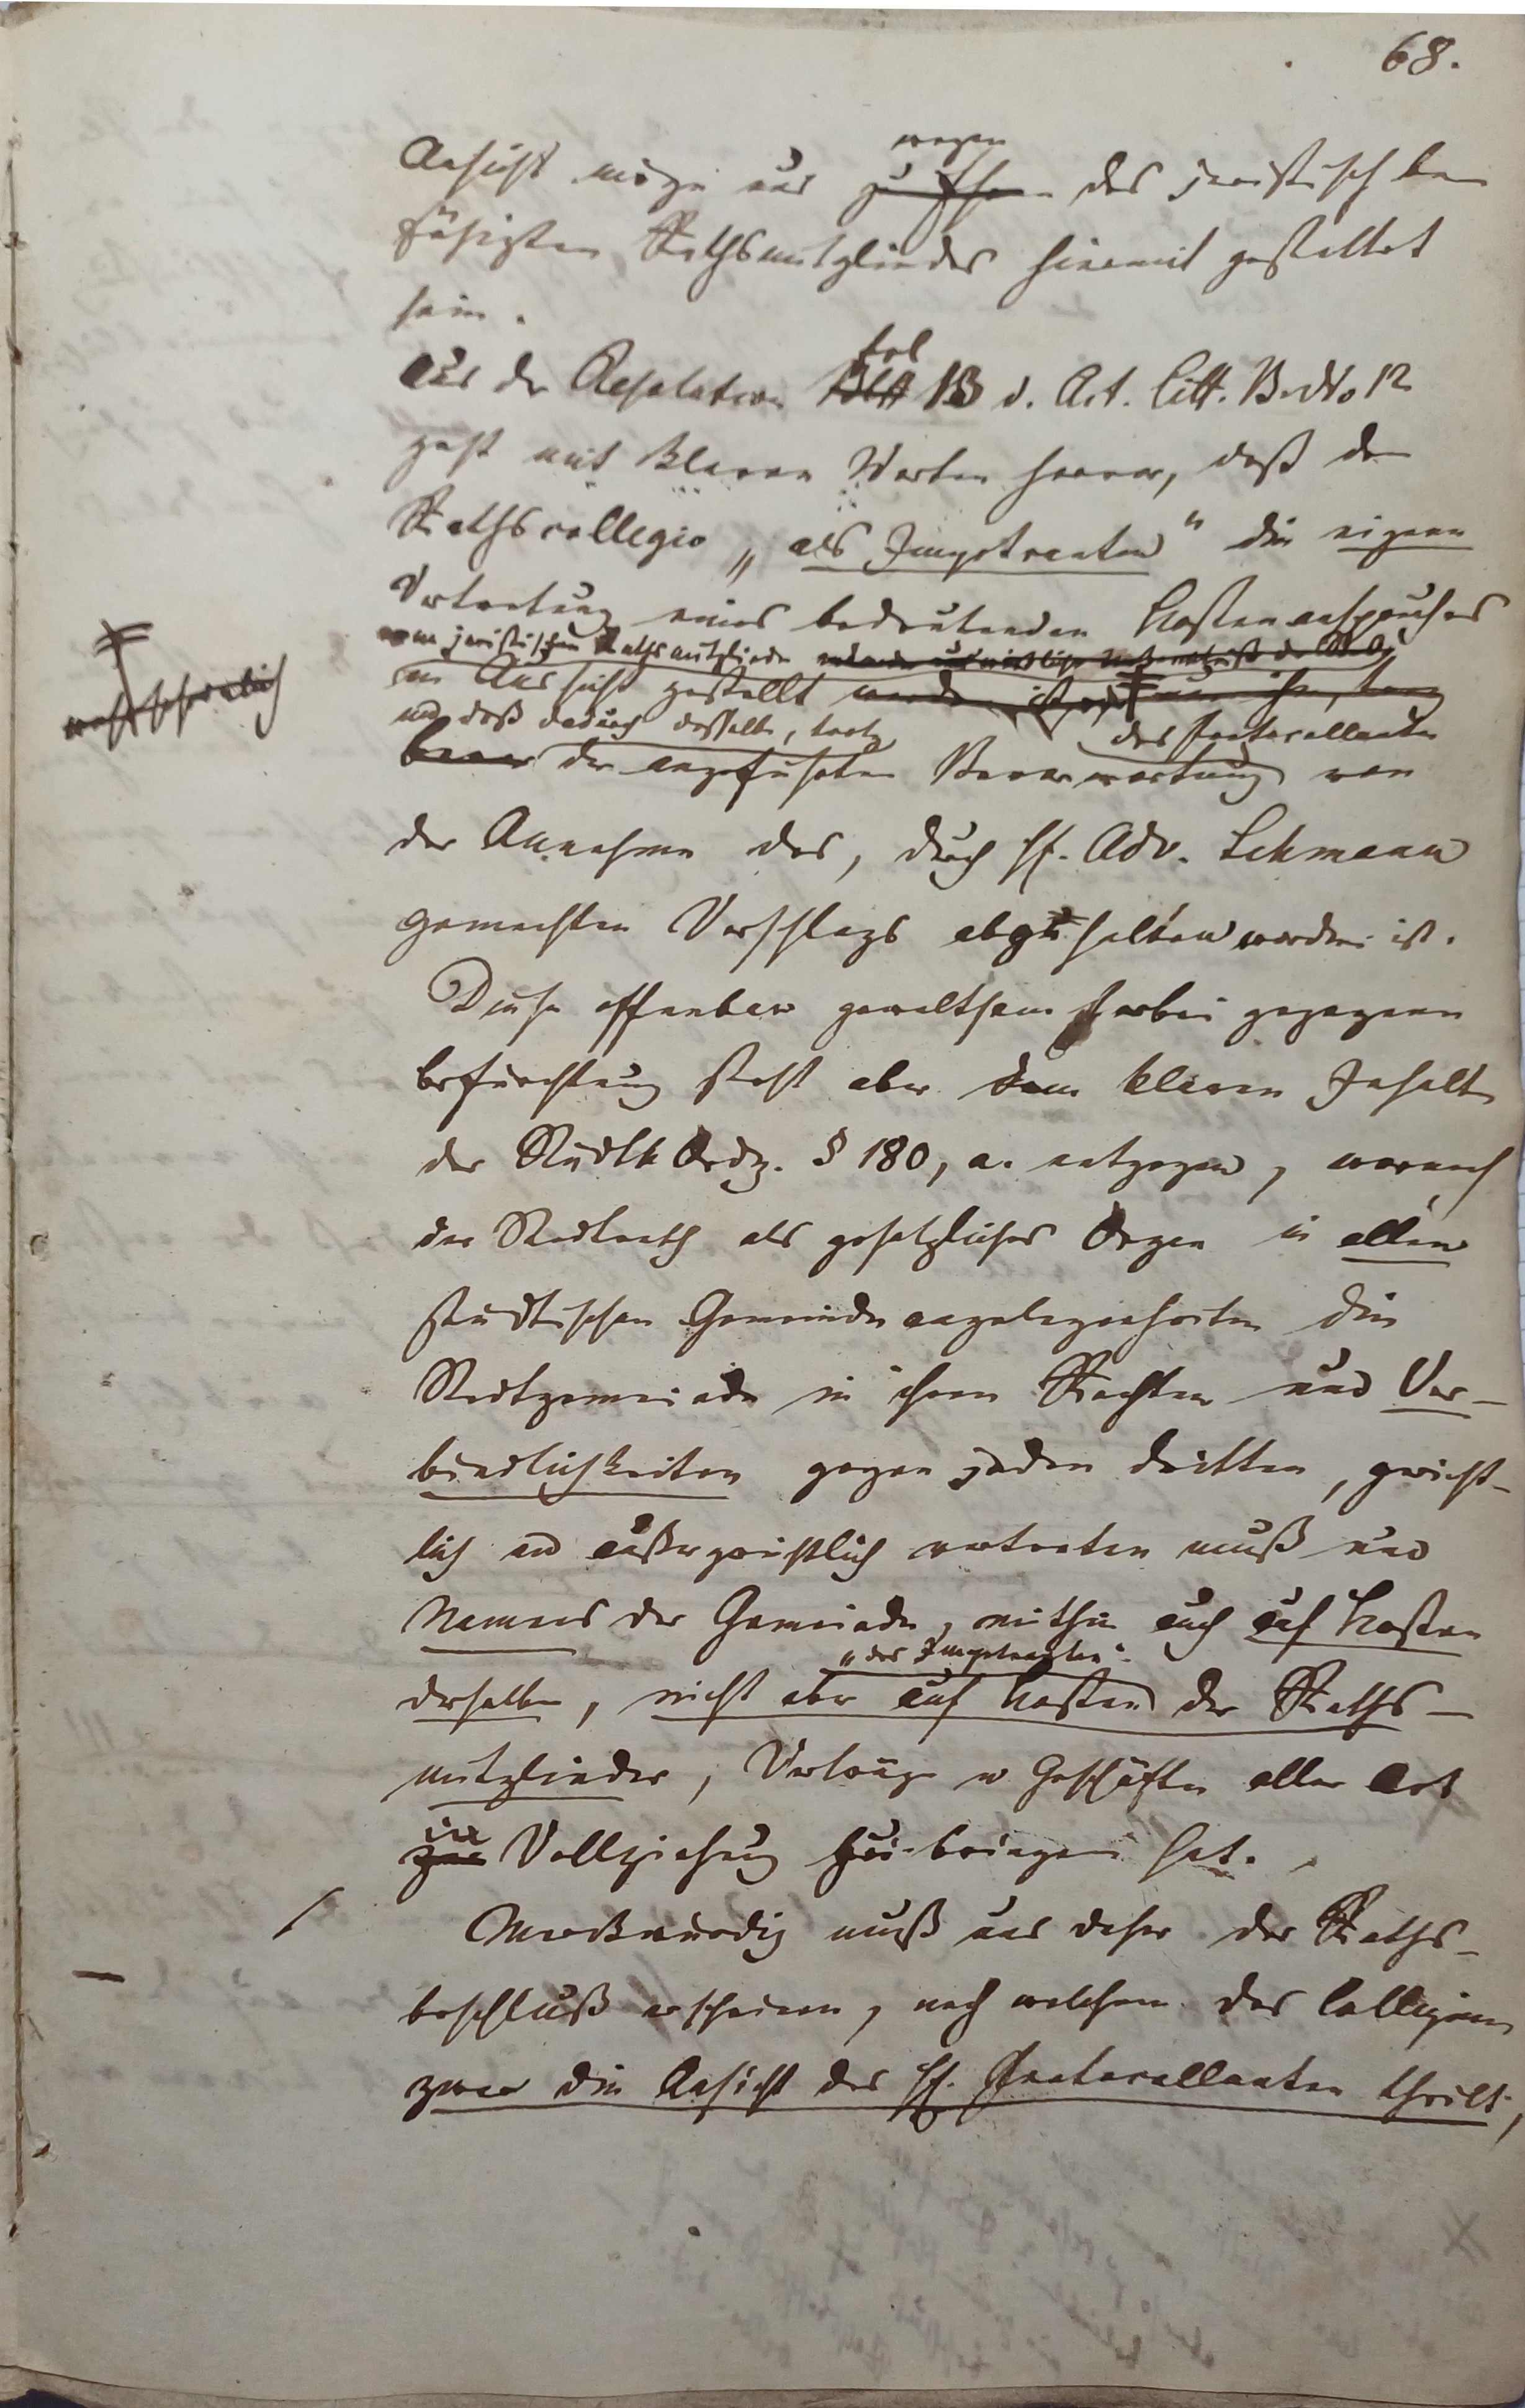 68.
wegen
Ansicht möge uns des juristisch be
fähigten Rathsmitgliedes hiermit gestattet
sein.
fol
Aus der Resolution 13 d. Act. Litt. B. No 12
geht mit klaren Worten hervor, daß dem
Rathscollegio „als Impetranten" die eigene
Vertretung eines bedeutenden Kostenanspruches
vom juristischen Rathsmitgliede
in Aussicht gestellt
wahrscheinlich
und daß dadurch dasselbe, trotz
des Protocollanten
der angeführten Bevorwortung von
der Annahme des, durch H. Adv. Lehmann
gemachten Vorschlags abgehalten worden ist.
Diese offenbar gewaltsam herbei gezogene
Befürchtung steht aber dem klaren Inhalte
der Städte Ordg. § 180, a. entgegen, wonach
der Stadtrath als gesetzliches Organ in allen
städtischen Gemeindeangelegenheiten die
Stadtgemeinde in ihren Rechten und Ver-
bindlichkeiten gegen jeden dritten, gericht-
lich und außergerichtlich vertreten muß und
Namens der Gemeinde, mithin auch auf Kosten
„der Impetranten"
derselben, nicht aber auf Kosten der Raths-
mitglieder, Verträge u Geschäfte aller Art
in
zur Vollziehung zu bringen hat.
Merkwürdig muß uns daher der Raths-
beschluß erscheinen, nach welchem das Collegium
zwar die Ansicht des H. Protocollanten theilt,